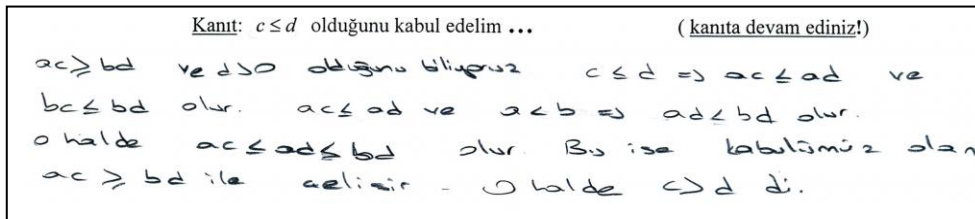 Kanıt: c ≤ d olduğunu kabul edelim ... ( kanıta devam ediniz!)
ac ≥ bd ve d>0 olduğunu biliyoruz c ≤ d => ac ≤ ad ve
bc ≤ bd olur. ac ≤ ad ve a < b => ad < bd olur.
o halde ac ≤ ad ≤ bd olur. Bu ise kabulümüz olan
ac ≥ bd ile çelişir - O halde c > d di.